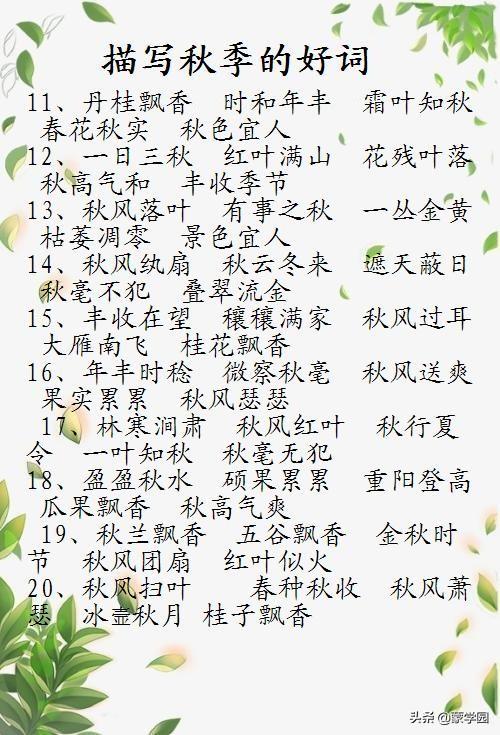 描写秋季的好词
11、丹桂飘香 时和年丰 霜叶知秋
春花秋实 秋色宜人
12、一日三秋 红叶满山 花残叶落
秋高气和 丰收季节
13、秋风落叶 有事之秋 一丛金黄
枯萎凋零 景色宜人
14、秋风纨扇 秋云冬来 遮天蔽日
秋毫不犯 叠翠流金
15、丰收在望 穰穰满家 秋风过耳
大雁南飞 桂花飘香
16、年丰时稔 微察秋毫 秋风送爽
果实累累 秋风瑟瑟
17、林寒涧肃 秋风红叶 秋行夏
令 一叶知秋 秋毫无犯
18、盈盈秋水 硕果累累 重阳登高
瓜果飘香 秋高气爽
19、秋兰飘香 五谷飘香 金秋时
节 秋风团扇 红叶似火
20、秋风扫叶 春种秋收 秋风萧
瑟 冰壶秋月 桂子飘香
头条 @蒙学园